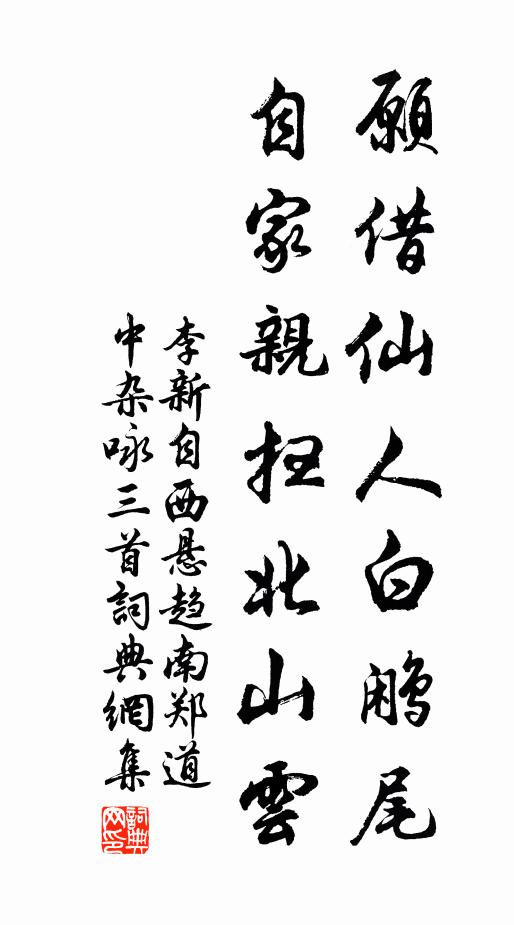 願借仙人白鹇尾
自家親扫北山雲
李新自西悬趋南郑道
中杂咏三首詞典網集
詞典
网印